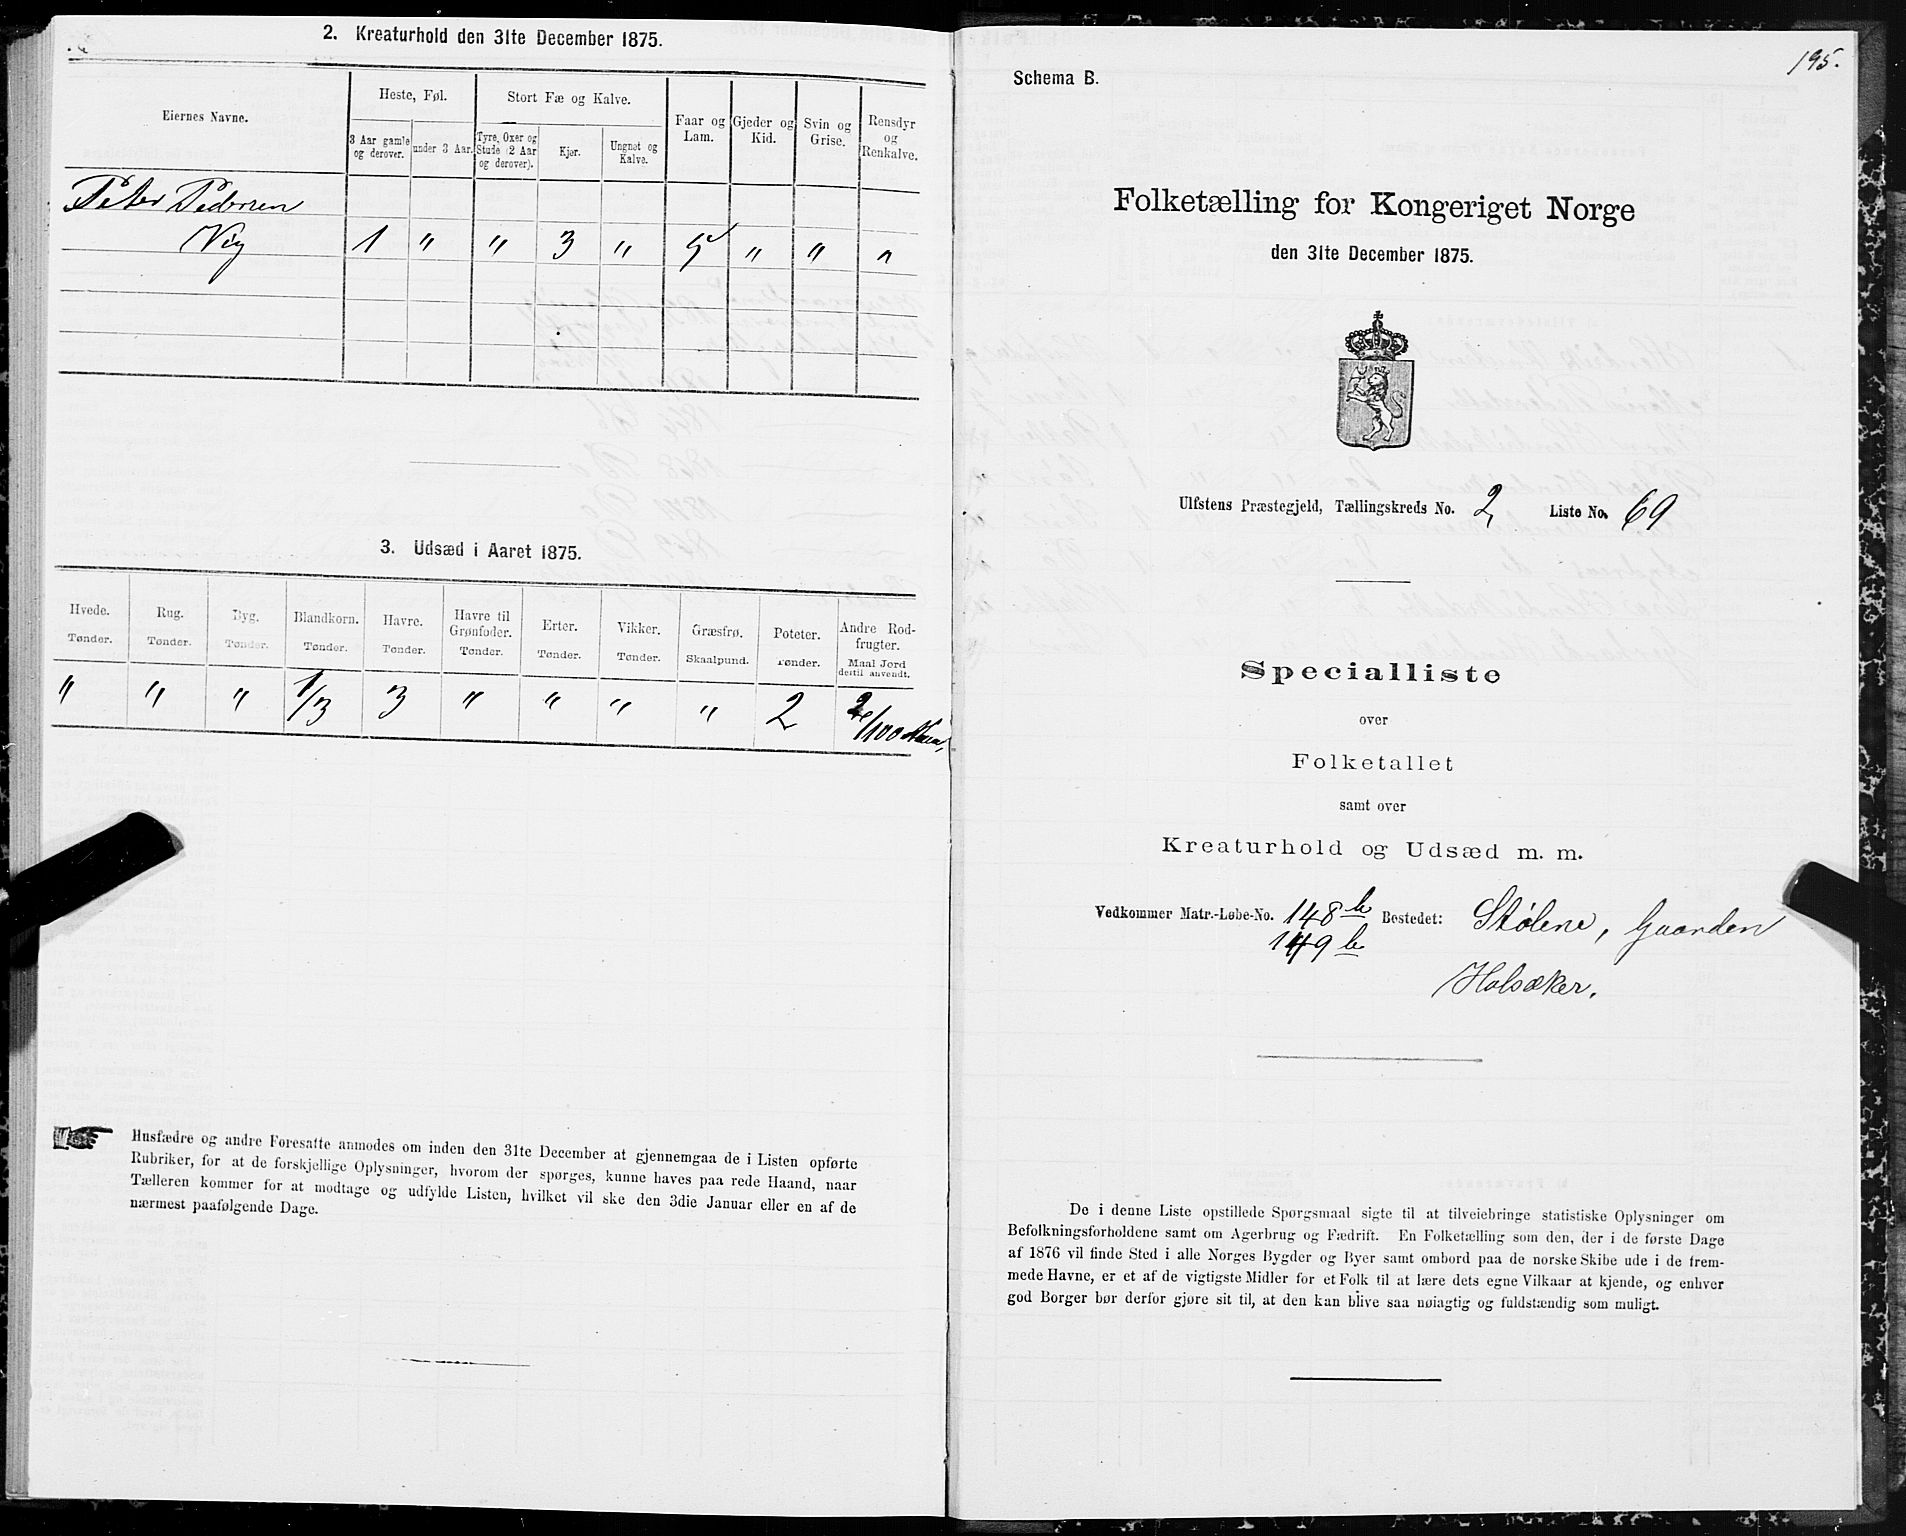 2. Kreaturhold den 31te December 1875.
Eiernes Navne.
Heste, Føl.
Stort Fæ og Kalve.
Faar og Lam.
Gjeder og Kid.
Svin og Grise.
Rensdyr og Renkalve.
3 Aar gamle og derover.
under 3 Aar.
Tyre, Oxer og Stude (2 Aar og derover).
Kjør.
Ungnøt og Kalve.
Peter Pedersen
Vig 1 " " 3 " 5 " " "
3. Udsæd i Aaret 1875.
Hvede. Rug. Byg. Blandkorn. Havre. Havre til Grønfoder. Erter. Vikker. Græsfrø. Poteter. Andre Rodfrugter.
Tønder. Tønder. Tønder. Tønder. Tønder. Tønder. Tønder. Tønder. Skaalpund. Tønder. Maal Jord dertil anvendt.
" " " 1/3 3 " " " " 2 /100
Husfædre og andre Foresatte anmodes om inden den 31te December at gjennemgaa de i Listen opførte
Rubriker, for at de forskjellige Oplysninger, hvorom der spørges, kunne haves paa rede Haand, naar
Tælleren kommer for at modtage og udfylde Listen, hvilket vil ske den 3die Januar eller en af de
nærmest paafølgende Dage.
195.
Schema B.
Folketælling for Kongeriget Norge
den 31te December 1875.
Ulfstens Præstegjeld, Tællingskreds No. 2, Liste No. 69
Specialliste
over
Folketallet
samt over
Kreaturhold og Udsæd m. m.
Vedkommer Matr.-Løbe-No. 148 b Bostedet: Stølene, Gaarden
149 b
Holsæker.
De i denne Liste opstillede Spørgsmaal sigte til at tilveiebringe statistiske Oplysninger om
Befolkningsforholdene samt om Agerbrug og Fædrift. En Folketælling som den, der i de første Dage
af 1876 vil finde Sted i alle Norges Bygder og Byer samt ombord paa de norske Skibe ude i de frem-
mede Havne, er et af de vigtigste Midler for et Folk til at lære dets egne Vilkaar at kjende, og enhver
god Borger bør derfor gjøre sit til, at den kan blive saa nøiagtig og fuldstændig som muligt.